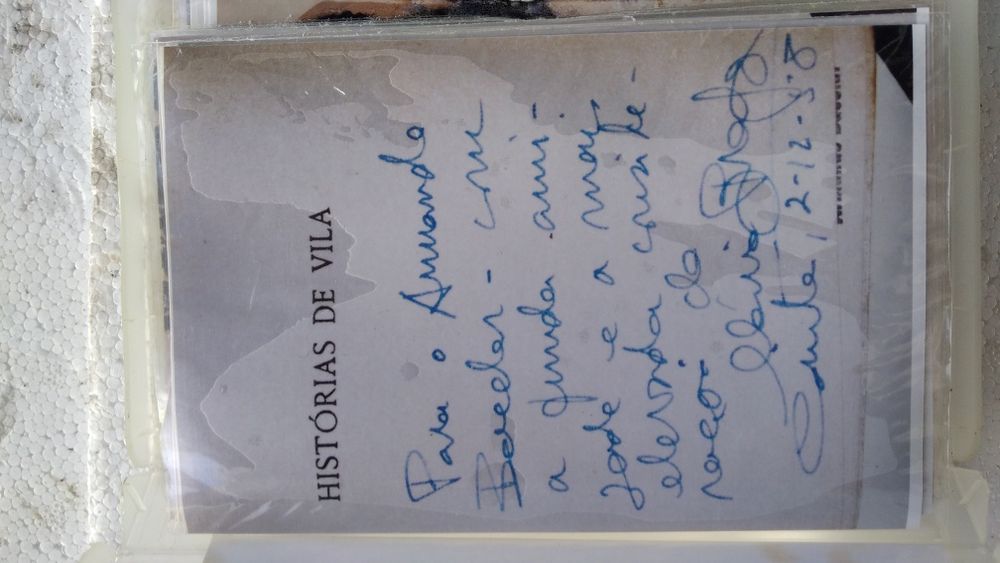 HISTÓRIAS DE VILA
Para o Armando
Bacelar - com
a funda ami-
zade e a mais
elevada conside-
ração do
Flávio
12-12-58